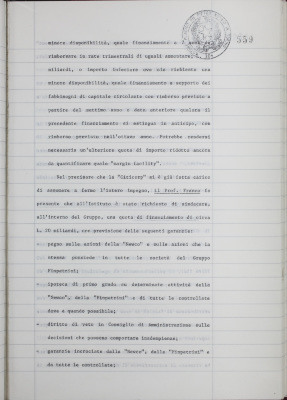 559
minore disponibilità, quale finanziamento a
rimborsare in rate trimestrali di uguali ammontare; L.
miliardi, o importo inferiore ove sia richiesta una
minore disponibilità, quale finanziamento a supporto del
fabbisogni di capitale circolante con rientro previsto a
partire dal settimo anno o data anteriore qualora il
precedente finanziamento si estingua in anticipo, con
rientro previsto nell'ottavo anno. Potrebbe rendersi
necessaria un'ulteriore quota di importo ridotto ancora
da quantificare quale "margin facility".
Nel precisare che la "Citicorp" si è già fatta carico
di assumere a fermo l'intero impegno, il Prof. Pranno fa
presente che all'Istituto è stato richiesto di sindacare,
all'interno del Gruppo, una quota di finanziamento di circa
L. 20 miliardi, con previsione delle seguenti garanzie:
- pegno sulle azioni della "Newco" e sulle azioni che la
stessa possiede in tutte le società del Gruppo
Finpetrini;
- ipoteca di primo grado su determinate attività della
"Newco", della "Finpetrini" e di tutte le controllate
dove e quando possibile;
- diritto di veto in Consiglio di Amministrazione sulle
decisioni che possono comportare inadempienze;
- garanzia incrociata dalla "Newco", dalla "Finpetrini" e
da tutte le controllate;